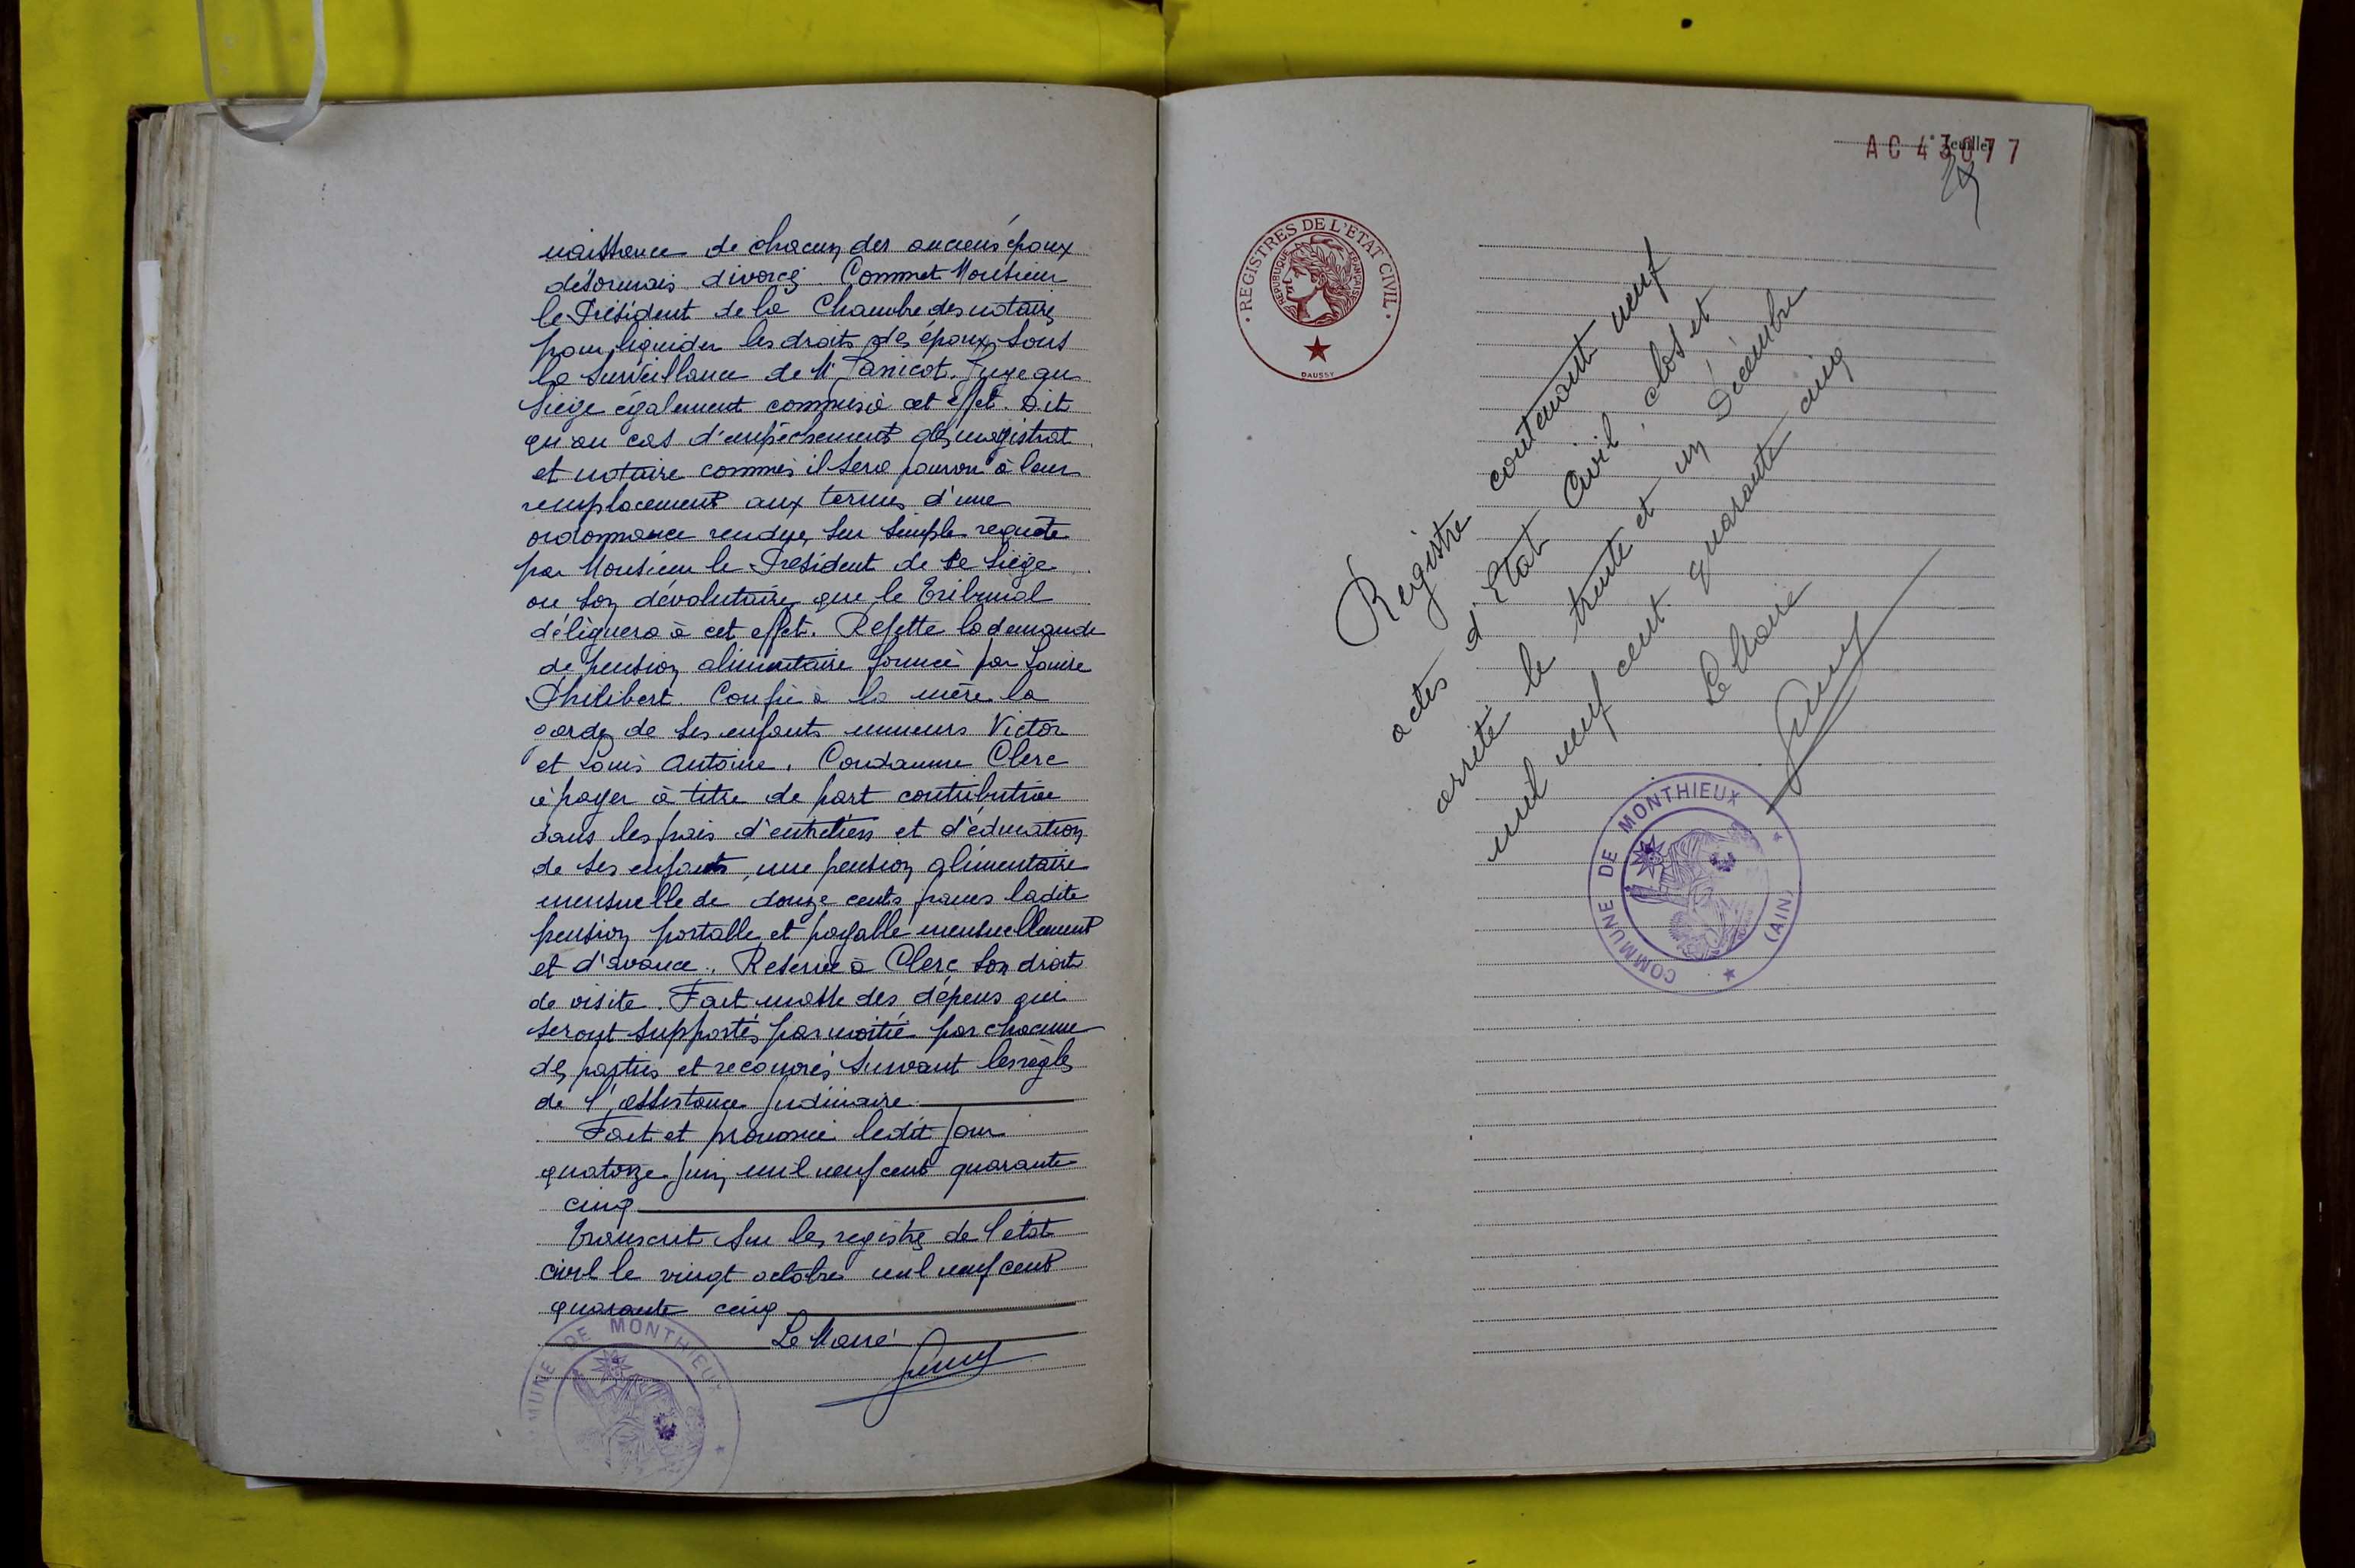 naissance de chacun des anciens époux
désormais divorcés. Commet Monsieur
le Président de la Chambre des notaires
pour liquider les droits des époux, sous
la surveillance de Mr Janicot, Juge au
siège également commis à cet effet. Dit
qu'au cas d'empêchement des magistrat
et notaire commis il sera pourvu à leur
remplacement aux termes d'une
ordonnance rendue sur simple requête
par Monsieur le Président de ce siège
ou son dévolutaire que le Tribunal
délèguera à cet effet. Rejette la demande
de pension alimentaire formée par Louise
Philibert. Confie à la mère la
garde de ses enfants mineurs Victor
et Louis Antoine. Condamne Clerc
à payer à titre de part contributive
dans les frais d'entretien et d'éducation
de ses enfants, une pension alimentaire
mensuelle de douze cents francs ladite
pension portable et payable mensuellement
et d'avance. Réserve à Clerc son droit
de visite. Fait masse des dépens qui
seront supportés par moitié par chacune
des parties et recouvrés suivant les règles
de l'assistance judiciaire
Fait et prononcé ledit jour
quatorze juin mil neuf cent quarante
cinq
Transcrit sur les registres de l'état
civil le vingt octobre mil neuf cent
quarante cinq
Le Maire
MUNE DE MONTHIEUX
AC 43077
Feuillet
REGISTRES DE L'ETAT CIVIL
REPUBLIQUE FRANÇAISE
DAUSSY
Registre contenant neuf
actes d'Etat Civil, clos et
arrêté le trente et un Décembre
mil neuf cent quarante cinq
Le Maire
COMMUNE DE MONTHIEUX
(AIN)